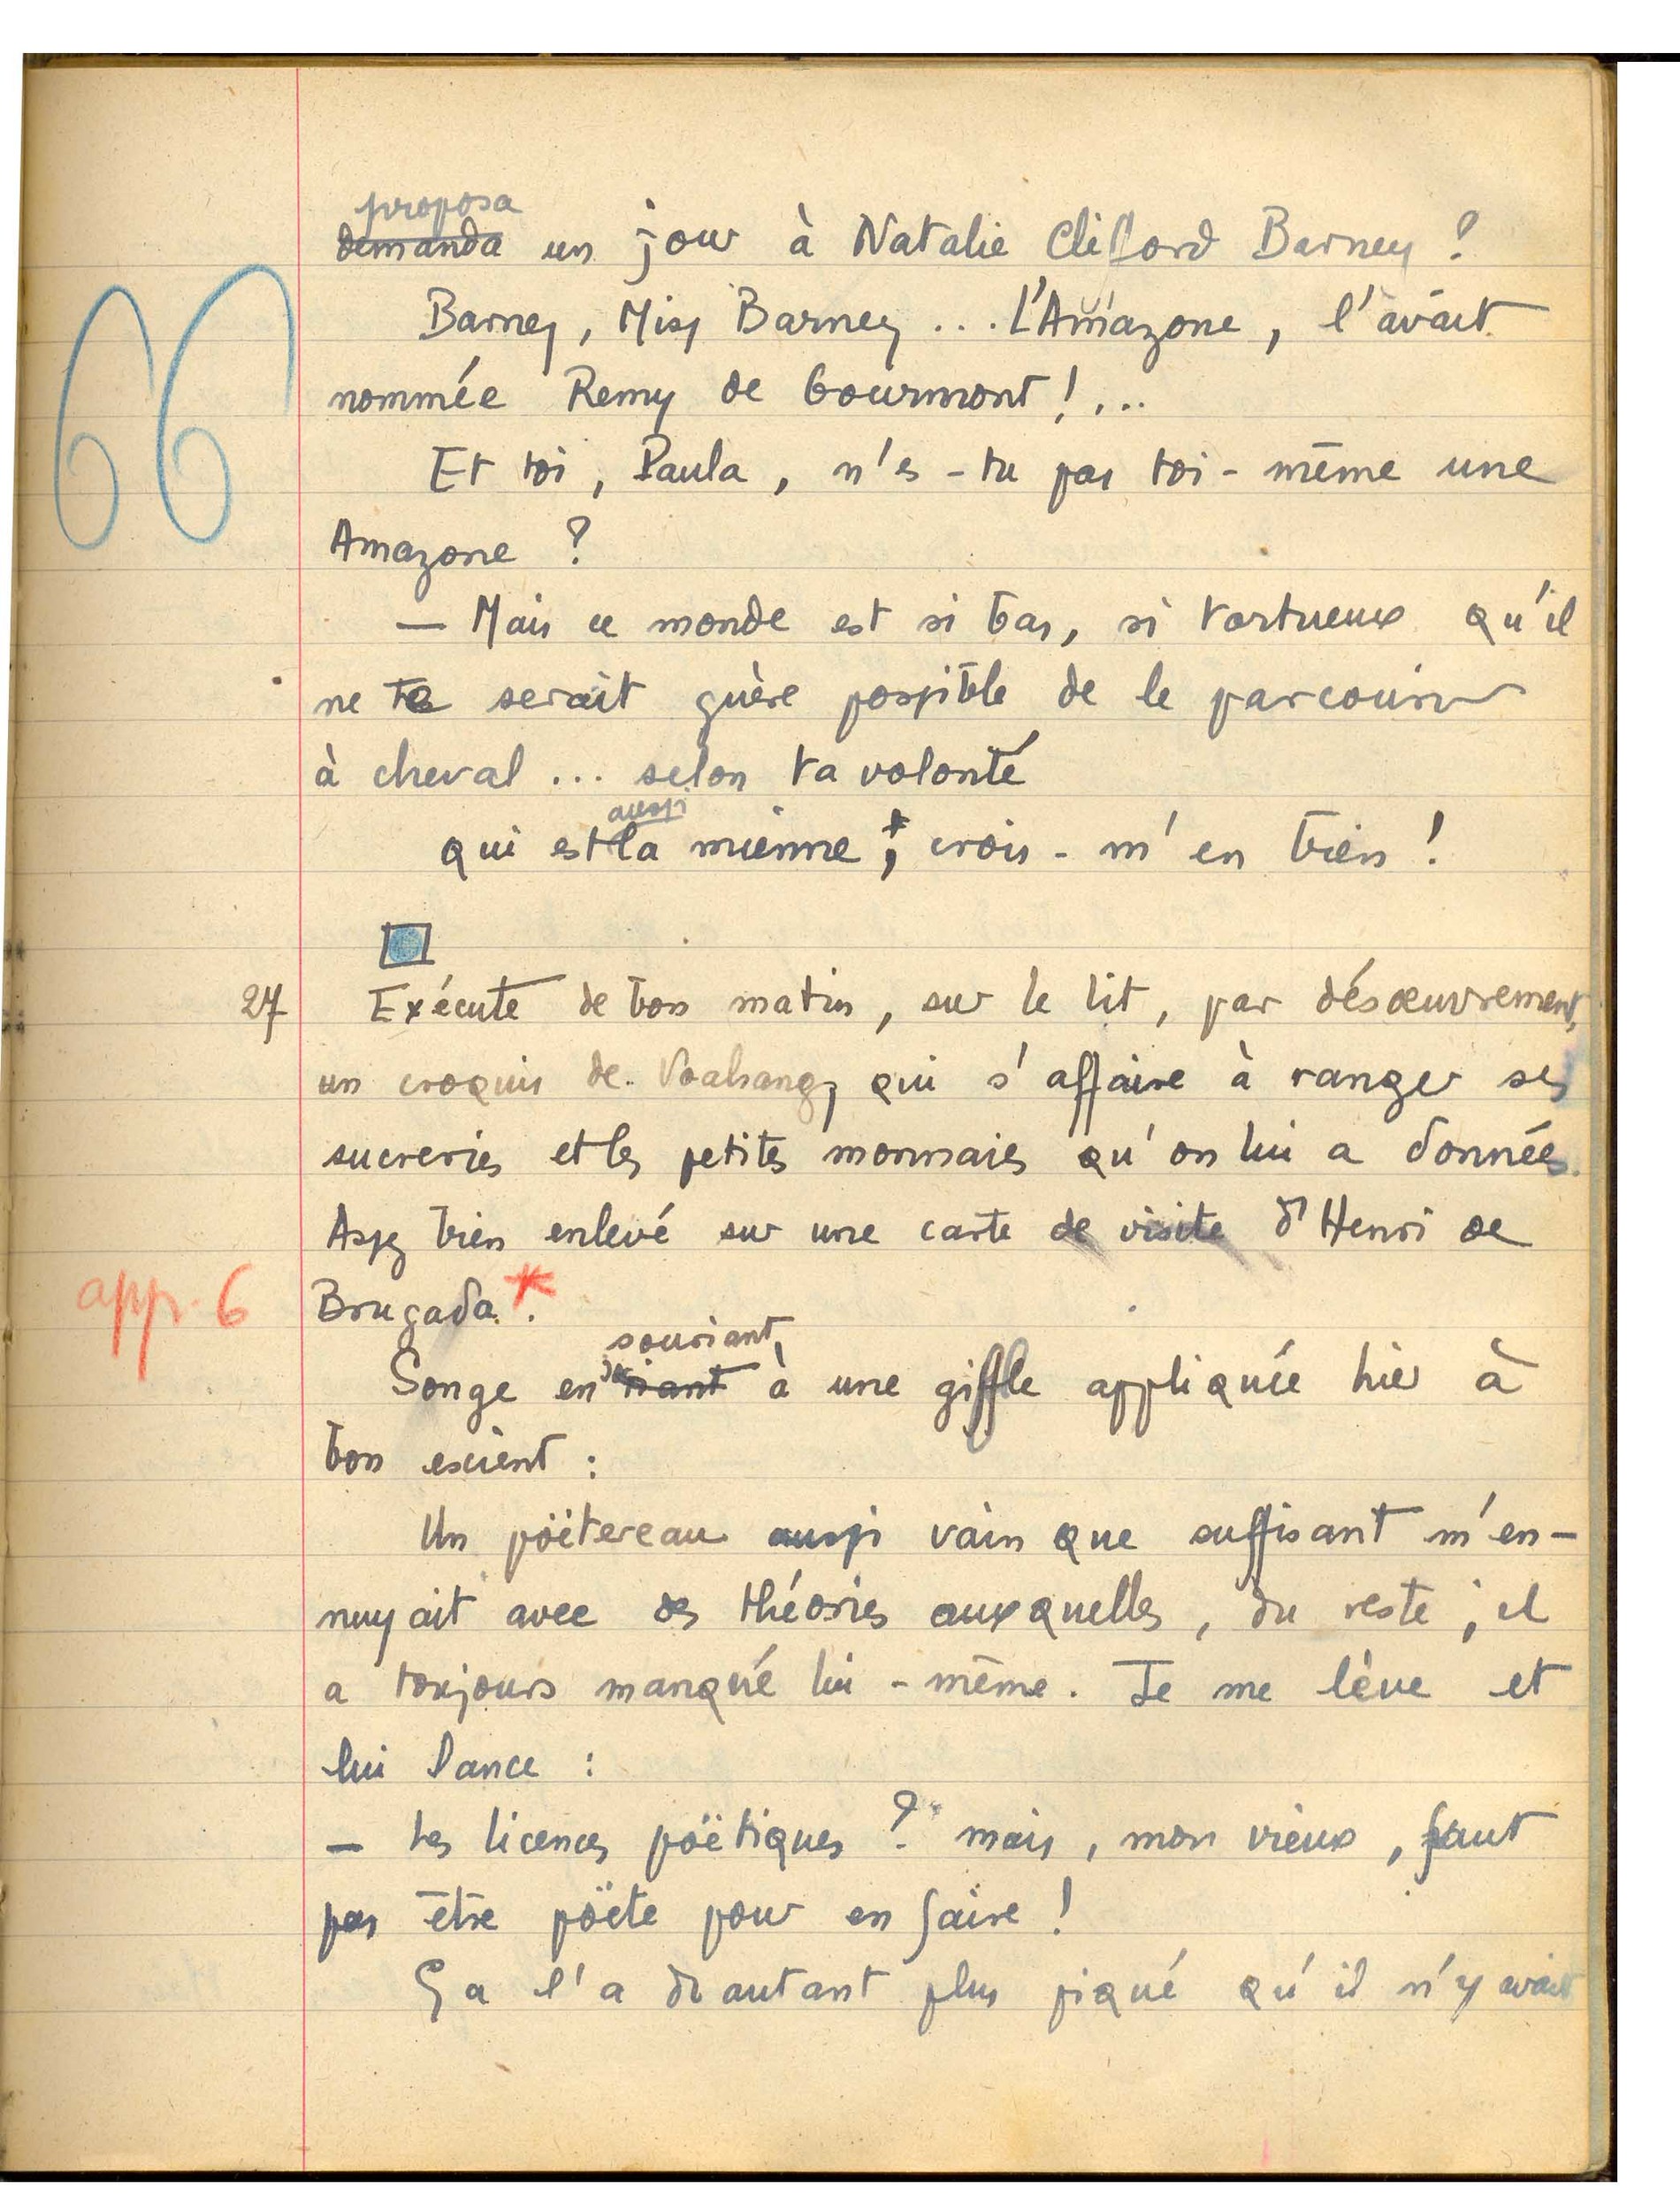 proposa
demanda un jour à Natalie Clifford Barney ?
Barney, Miss Barney ... L'Amazone, l'avait
nommée Remy de Gourmont ! ...
66
Et toi, Paula, n'es-tu pas toi-même une
Amazone ?
— Mais ce monde est si bas, si tortueux qu'il
ne te serait guère possible de le parcourir
à cheval ... selon ta volonté
aussi
qui est la mienne, crois-m'en bien !
27 Exécute de bon matin, sur le lit, par désœuvrement,
un croquis de Voahangy qui s'affaire à ranger ses
sucreries et les petites monnaies qu'on lui a données.
Assez bien enlevé sur une carte de visite d'Henri de
app. 6 Brugada *.
souriant,
Songe en riant à une giffle appliquée hier à
bon escient :
Un poëtereau aussi vain que suffisant m'en-
nuyait avec des théories auxquelles, du reste, il
a toujours manqué lui-même. Je me lève et
lui lance :
— Les licences poëtiques ? mais, mon vieux, faut
pas être poëte pour en faire !
Ça l'a d'autant plus piqué qu'il n'y avait